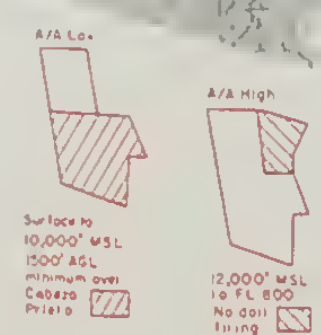 A/A Low
Surface to
10,000' MSL
1500' AGL
minimum over
Cabeza
Prieta
A/A High
12,000' MSL
to FL 800
No dart
firing